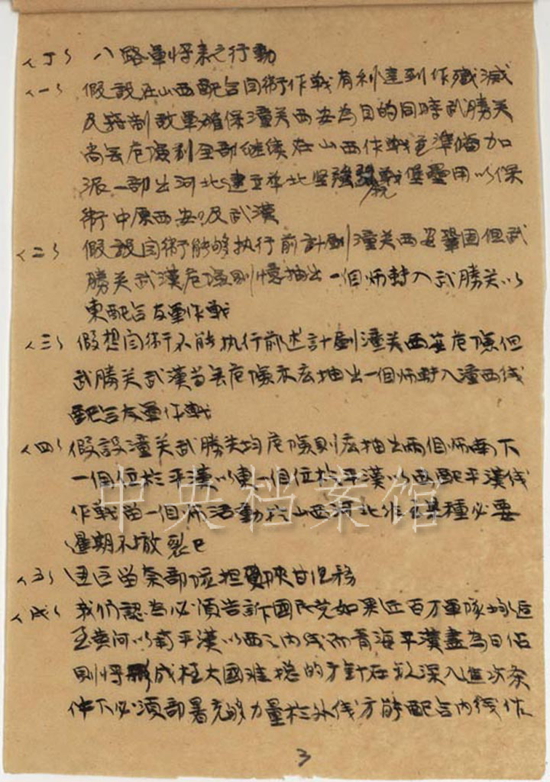 (丁) 八路軍将来之行動
(一) 假設在山西配合閻衛作战有利達到作殲滅
及控制敌軍確保潼关西安為目的同時武勝关
尚無危險則全部继续在山西作战並準備加
派一部出河北建立华北坚強堡壘用以保
衛中原西安及武漢
(二) 假設閻衛能够执行前計劃潼关西安鞏固但武
勝关武漢危險則應抽出一個师转入武勝关以
東配合友軍作战
(三) 假想閻衛不能执行前述計劃潼关西安危險但
武勝关武漢尚無危險亦应抽出一個师转入潼西线
配合友軍作战
(四) 假設潼关武勝关均危險則应抽出两個师南下
一個位於平漢以東一個位於平漢以西配平漢线
作战留一個师活動於山西河北非在某種必要
過期不撤
(五) 部隊担任陕甘任務
(六) 我們認為必須告訴国民党如果近百万軍隊均退
至黄河以南平漢以西之内线而青海平漢盡為日佔
則将形成极大困难 的方針在敌深入進攻条
件下必須部署充够力量於外线方能配合内线作
3
中央档案馆